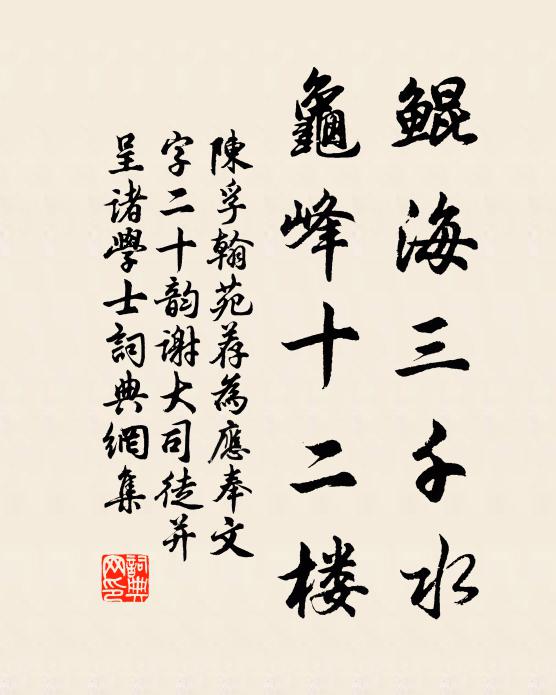 鯤海三千水
龜峰十二楼
陳孚翰苑荐為應奉文
字二十韵谢大司徒并
呈诸學士詞典網集
詞典网印